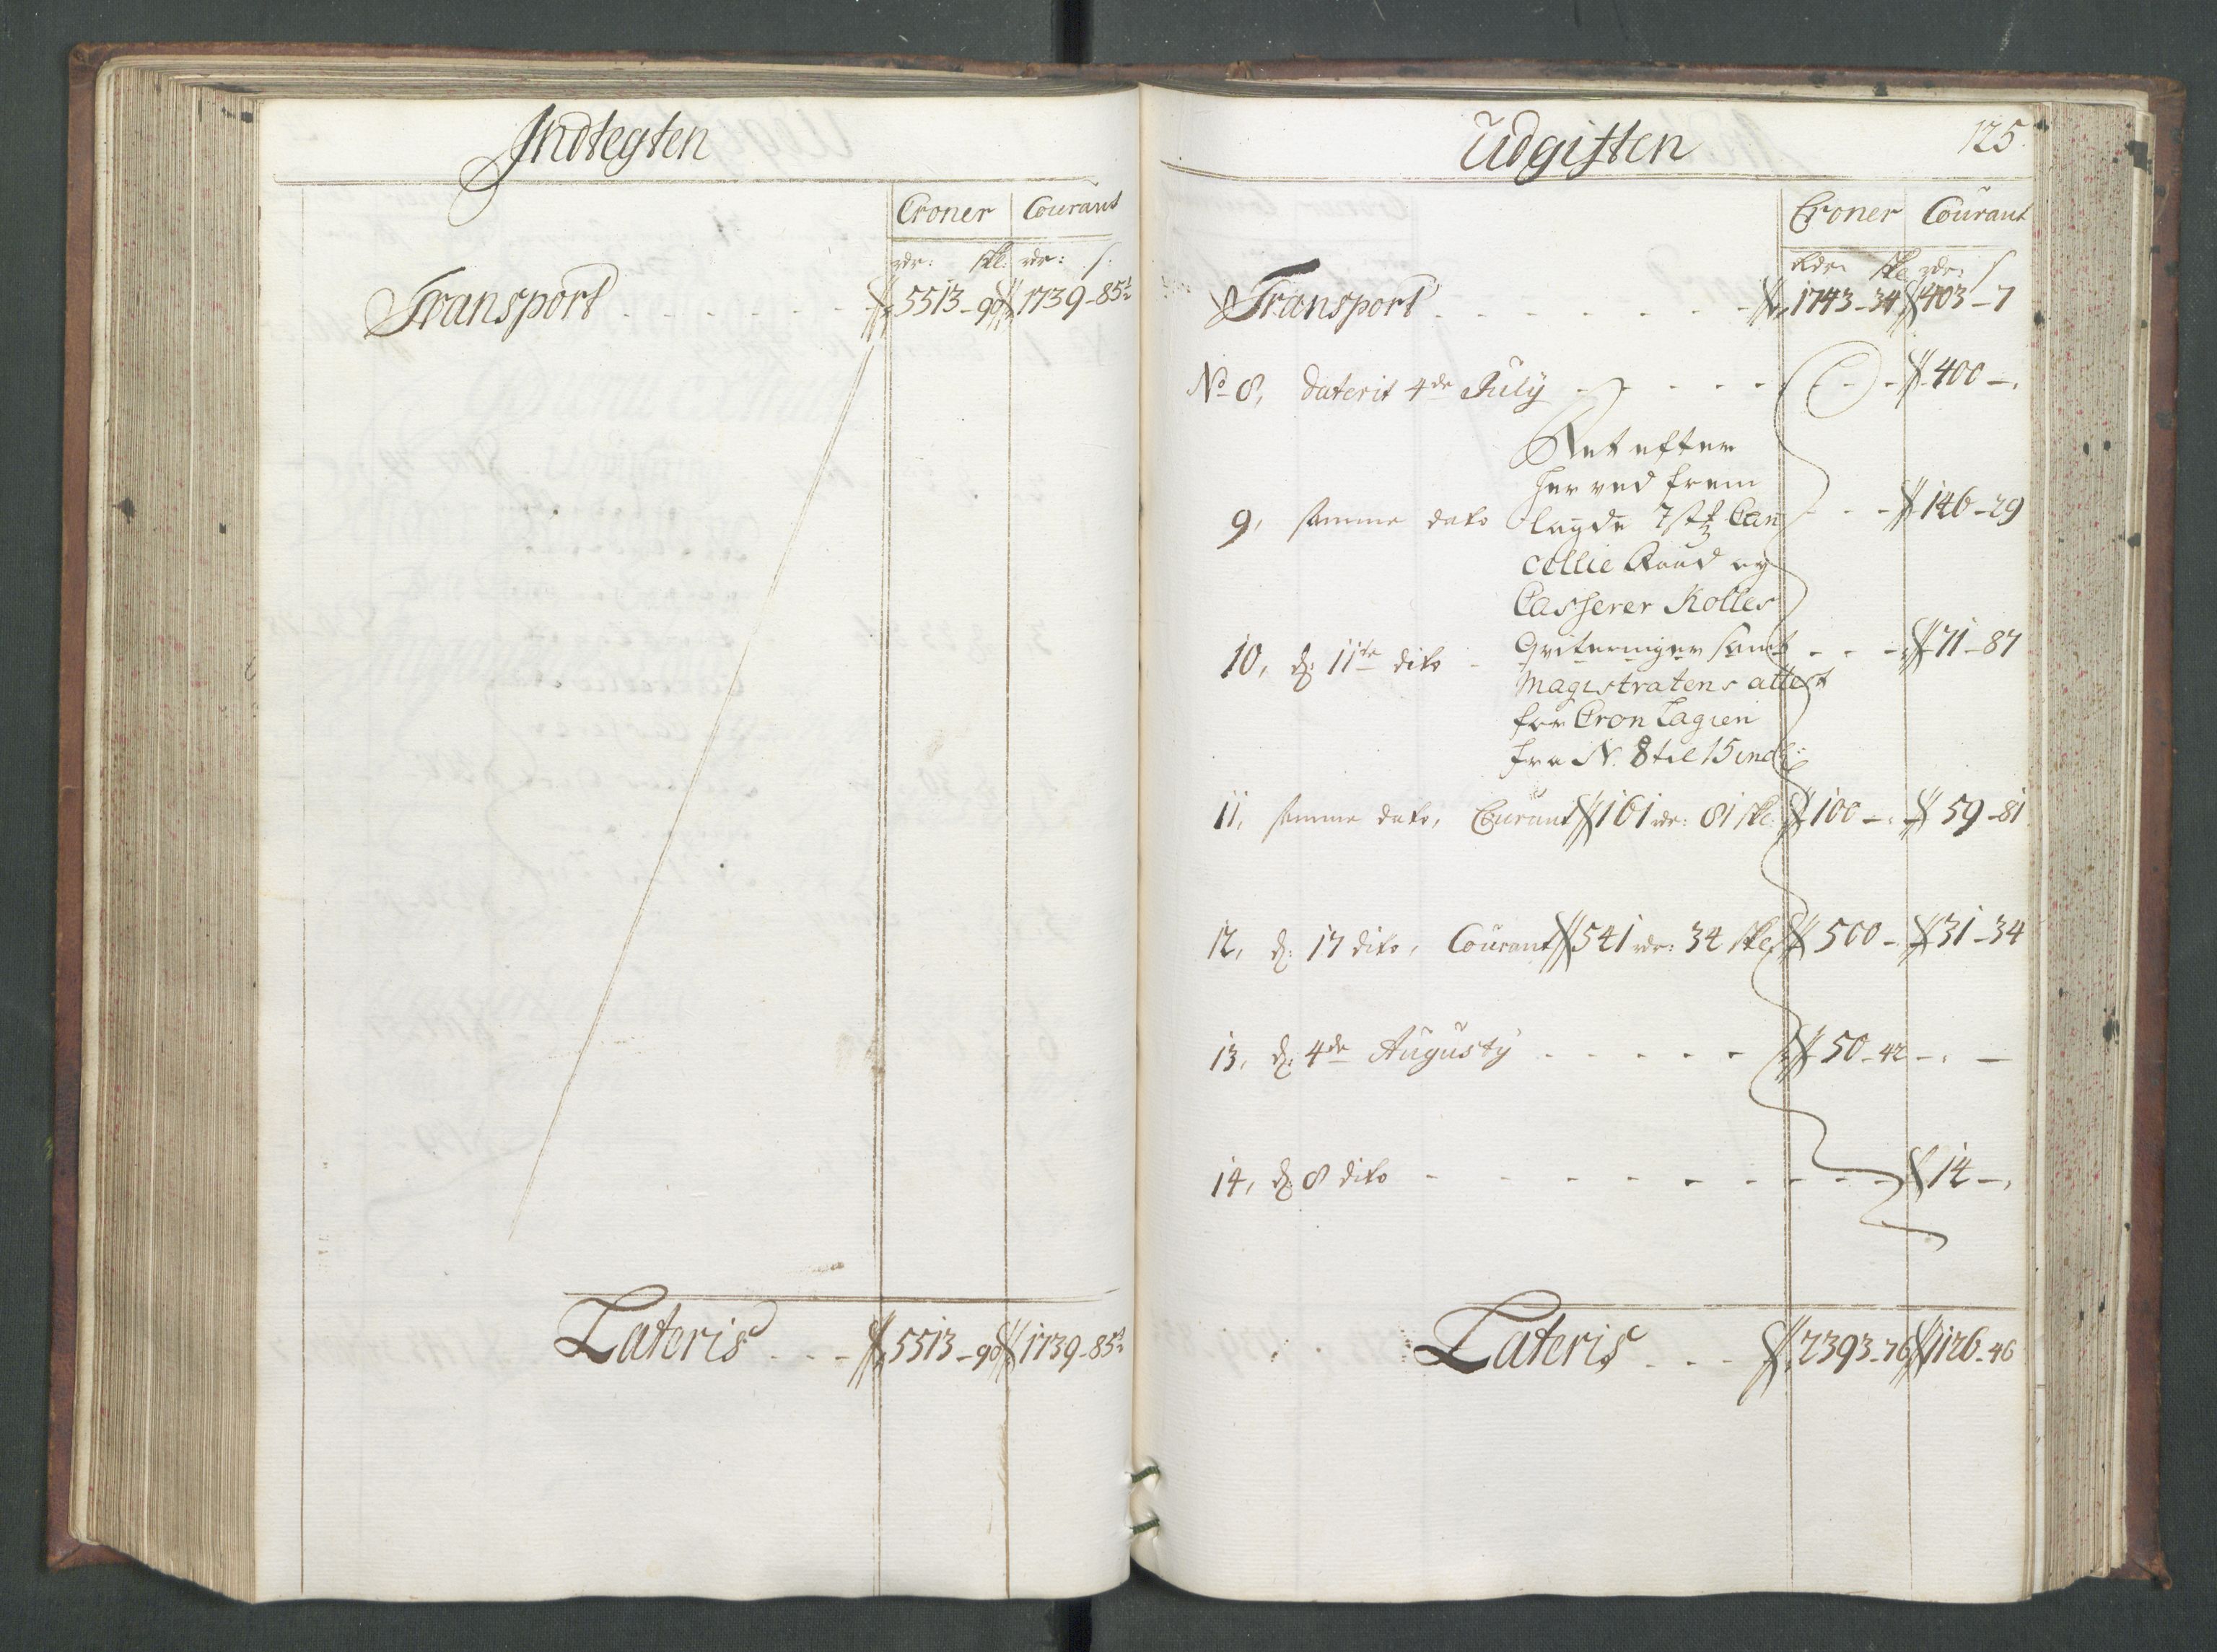 Indtegten
Croner Courant
rdr: skl: rdr: s:
Transport - - - - - - 5513 - 90 1739 - 85½
Lateris - - - 5513 - 90 1739 - 85½
Udgiften 125.
Croner Courant
Rdr: skl rdr: s
Transport - - - - - - - 1743 - 34 403 - 7
No 8, daterit 4de July - - - - - - - 400 -,
Ret efter
her ved frem
9, samme dato lagde 7 st Can - - - 146 - 29
cellie Raad og
Casserer Kolles
10, d: 11te dito - Qviteringer samt - - - 71 - 87
Magistratens attest
for Cron Lagien
fra N. 8 til 15 incl:
11, samme dato, Courant 161 rdr: 81 skl: 100 -, 59 - 81
12, d: 17 dito, Courant 541 rdr: 34 skl 500 - 31 - 34
13, d: 4de Augusty - - - - - 50 - 42 -, -
14, d: 8 dito - - - - - - - - - 14 -,
Lateris - - - 2393 - 76 1126 - 46